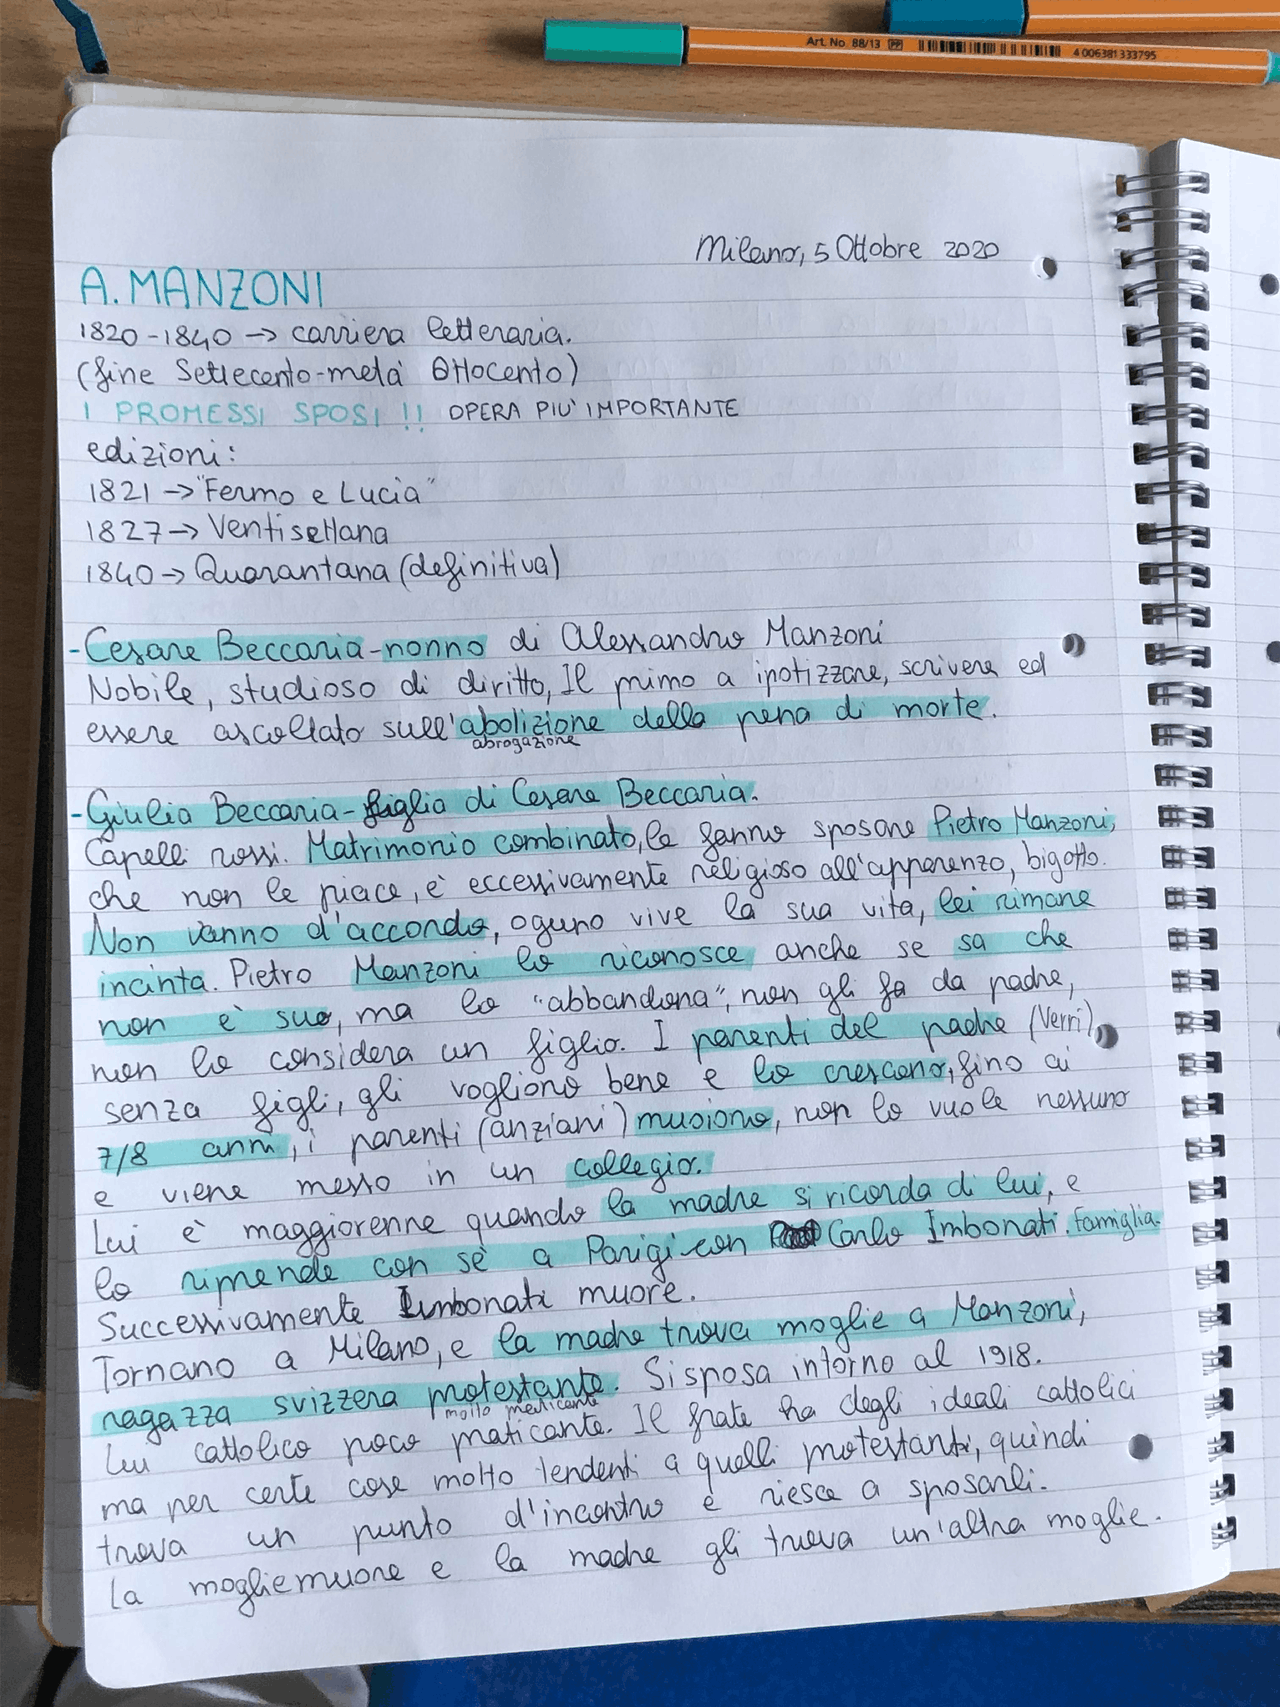 Art. No 88/13 PP 4 006381 333795
Milano, 5 Ottobre 2020
A. MANZONI
1820-1840 → carriera letteraria.
(fine Settecento-metà Ottocento)
I PROMESSI SPOSI !! OPERA PIU' IMPORTANTE
edizioni:
1821 → "Fermo e Lucia"
1827 → Ventisettana
1840 → Quarantana (definitiva)
- Cesare Beccaria - nonno di Alessandro Manzoni
Nobile, studioso di diritto, Il primo a ipotizzare, scrivere ed
essere ascoltato sull'abolizione della pena di morte.
abrogazione
- Giulia Beccaria - figlia di Cesare Beccaria.
Capelli rossi. Matrimonio combinato, le fanno sposare Pietro Manzoni,
che non le piace, è eccessivamente religioso all'apparenza, bigotto.
Non vanno d'accordo, ognuno vive la sua vita, lei rimane
incinta. Pietro Manzoni lo riconosce anche se sa che
non è suo, ma lo "abbandona", non gli fa da padre,
non lo considera un figlio. I parenti del padre (Verri),
senza figli, gli vogliono bene e lo crescono, fino ai
7/8 anni, i parenti (anziani) muoiono, non lo vuole nessuno
e viene messo in un collegio.
Lui è maggiorenne quando la madre si ricorda di lui, e
lo riprende con sè a Parigi con Carlo Imbonati. famiglia.
Successivamente Imbonati muore.
Tornano a Milano, e la madre trova moglie a Manzoni,
ragazza svizzera protestante. Si sposa intorno al 1918.
molto praticante
Lui cattolico poco praticante. Il frate ha degli ideali cattolici
ma per certe cose molto tendenti a quelli protestanti, quindi
trova un punto d'incontro e riesce a sposarli.
La moglie muore e la madre gli trova un'altra moglie.